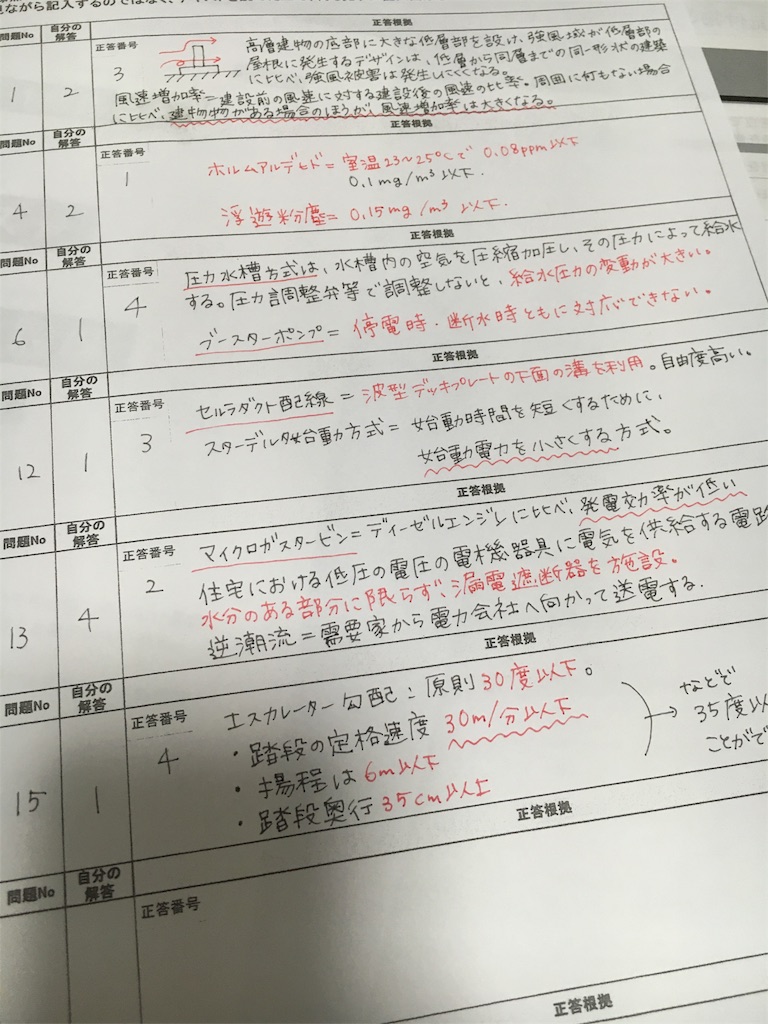 見ながら記入するのではなく、
正答根拠
問題No 自分の解答 正答番号
1 2 3
高層建物の底部に大きな低層部を設け、強風域が低層部の
屋根に発生するデザインは、低層から同層までの同一形状の建築
に比べ、強風被害は発生しにくくなる。
風速増加率=建設前の風速に対する建設後の風速の比率。周囲に何もない場合
に比べ、建物物がある場合のほうが、風速増加率は大きくなる。
正答根拠
問題No 自分の解答 正答番号
4 2 1
ホルムアルデヒド=室温23~25℃で 0.08ppm以下
0.1mg/m³以下.
浮遊粉塵=0.15mg/m³以下.
正答根拠
問題No 自分の解答 正答番号
6 1 4
圧力水槽方式は、水槽内の空気を圧縮加圧し、その圧力によって給水
する。圧力調整弁等で調整しないと、給水圧力の変動が大きい。
ブースターポンプ=停電時・断水時ともに対応できない。
正答根拠
問題No 自分の解答 正答番号
12 1 3
セルラダクト配線=波型デッキプレートの下面の溝を利用。自由度高い。
スターデルタ始動方式=始動時間を短くするために、
始動電力を小さくする方式。
正答根拠
問題No 自分の解答 正答番号
13 4 2
マイクロガスタービン=ディーゼルエンジンに比べ、発電効率が低い
住宅における低圧の電圧の電機器具に電気を供給する電路
水分のある部分に限らず、漏電遮断器を施設。
逆潮流=需要家から電力会社へ向かって送電する.
正答根拠
問題No 自分の解答 正答番号
15 1 4
エスカレーター勾配:原則30度以下。
・踏段の定格速度 30m/分以下
・揚程は6m以下
・踏段奥行35cm以上
などで
35度以
ことがで
正答根拠
問題No 自分の解答 正答番号
正答根拠